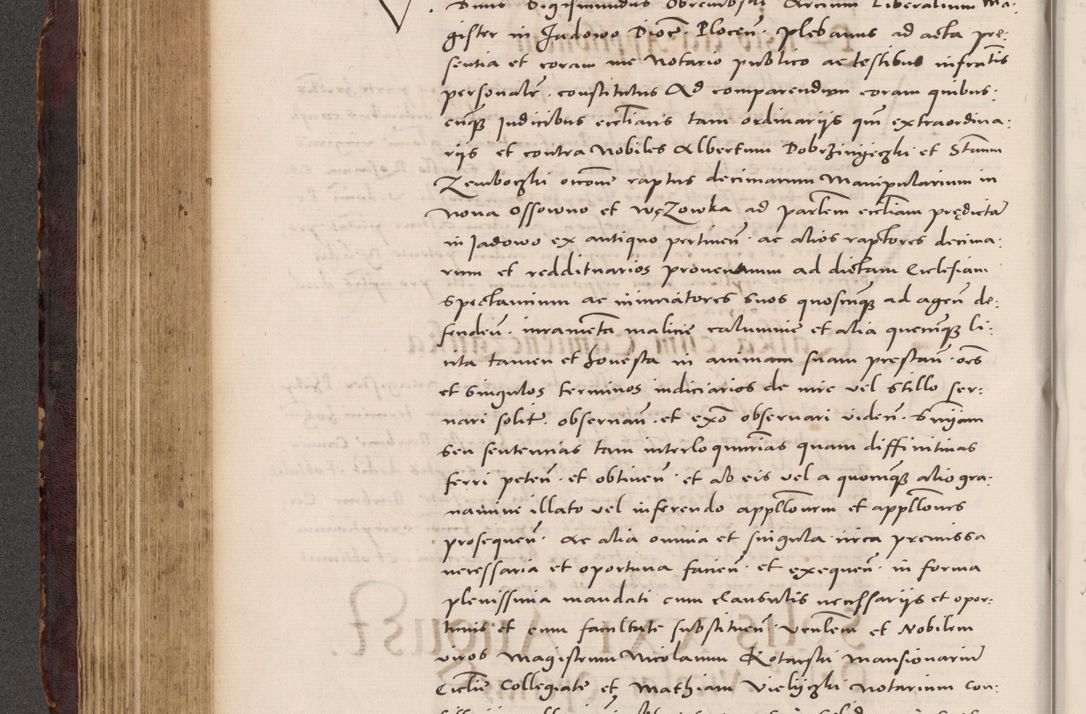 Dnus Sigismundus Obrembski Arcium Liberalium Ma-
gister in Jadowo Dioce. Plocen. plebanus ad acta pre-
sentia et coram me Notario publico ac testibus infratis
personalr. constitutus Ad comparendum coram quibus-
cunqz Judicibus ecclianis tam ordinariis qm extraordina-
riis et contra Nobiles Albertum Dobrzinieczki et Stanm
Zemboczki occone raptus decimarum manipularium in
Nova Ossowno et Węzowka ad parlem eccliam prędictā
in Jadowo ex antiquo pertinen. ac alios raptores decima-
rum et reddituarios proventuum ad dictam Ecclesiam
spectantium ac iniuriatores suos quoscunqz ad agen. de-
fenden. iuramenta malicie calumnie et alia quecunqz li-
cita tamen et honesta in animam suam prestan. oes
et singulos terminos iudiciarios de iure vel stillo ser-
vari solit. observan. et exō observari viden. sniam
seu sententias tam interloquutias quam diffinitivas
ferri peten. et obtinen. et ab eis vel a quocunqz alio gra-
vamine illato vel inferendo appellonem et appellones
prosequen. ac alia omnia et singula circa premissa
necessaria et oportuna facien. et exequen. in forma
plenissima mandati cum clausulis necessariis et opor-
tunis et cum facultate substituen. venlem et Nobilem
viros Magistrum Nicolaum Kotarski mansionarium
Ecclie Collegiate et Mathiam Vieliczki Notarium Con-